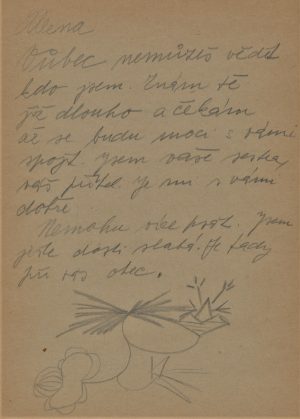 Milena
Vůbec nemůžeš vědět
kdo jsem. Znám tě
již dlouho a čekám
až se budu moci s vámi
spojit. Jsem vaše sestra,
váš přítel. Je mi s vámi
dobře.
Nemohu více psát. Jsem
ješte dosti slabá. Je tady
při vás otec.